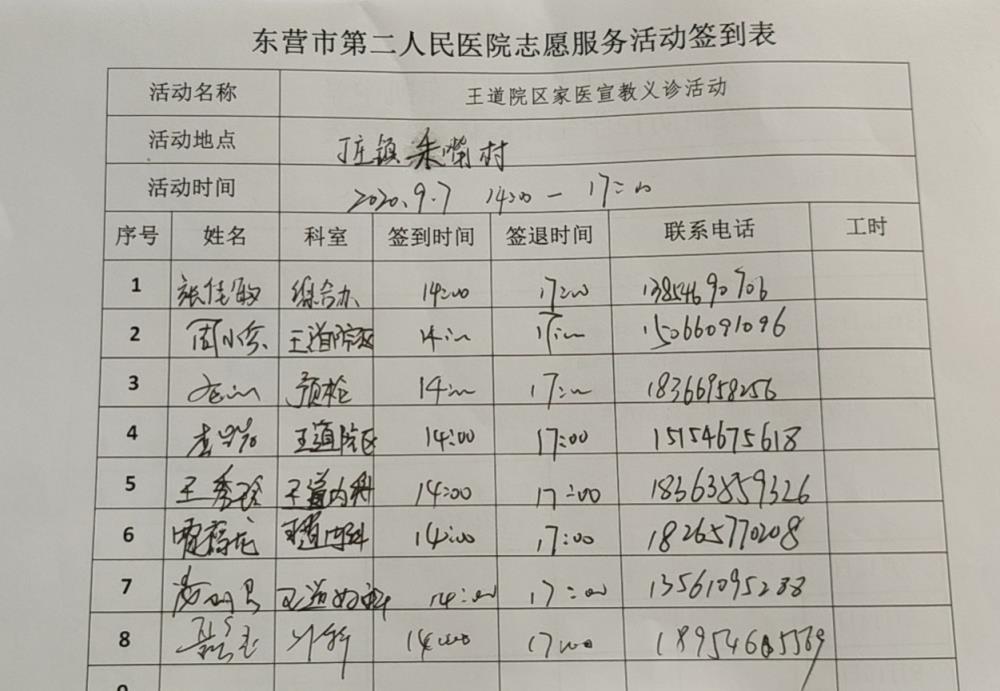 东营市第二人民医院志愿服务活动签到表
活动名称 王道院区家医宣教义诊活动
活动地点 丁庄镇朱嘴村
活动时间 2020.9.7 14:00 — 17:00
序号 姓名 科室 签到时间 签退时间 联系电话 工时
1 张佳敏 综合办 14:00 17:00 13854690706
2 周小东 王道院区 14:00 17:00 15066091096
3 预检 14:00 17:00 18366958256
4 王道院区 14:00 17:00 15154675618
5 王秀玲 王道内科 14:00 17:00 18363859326
6 王道内科 14:00 17:00 18265770208
7 王道妇科 14:00 17:00 13561095288
8 外科 14:00 17:00